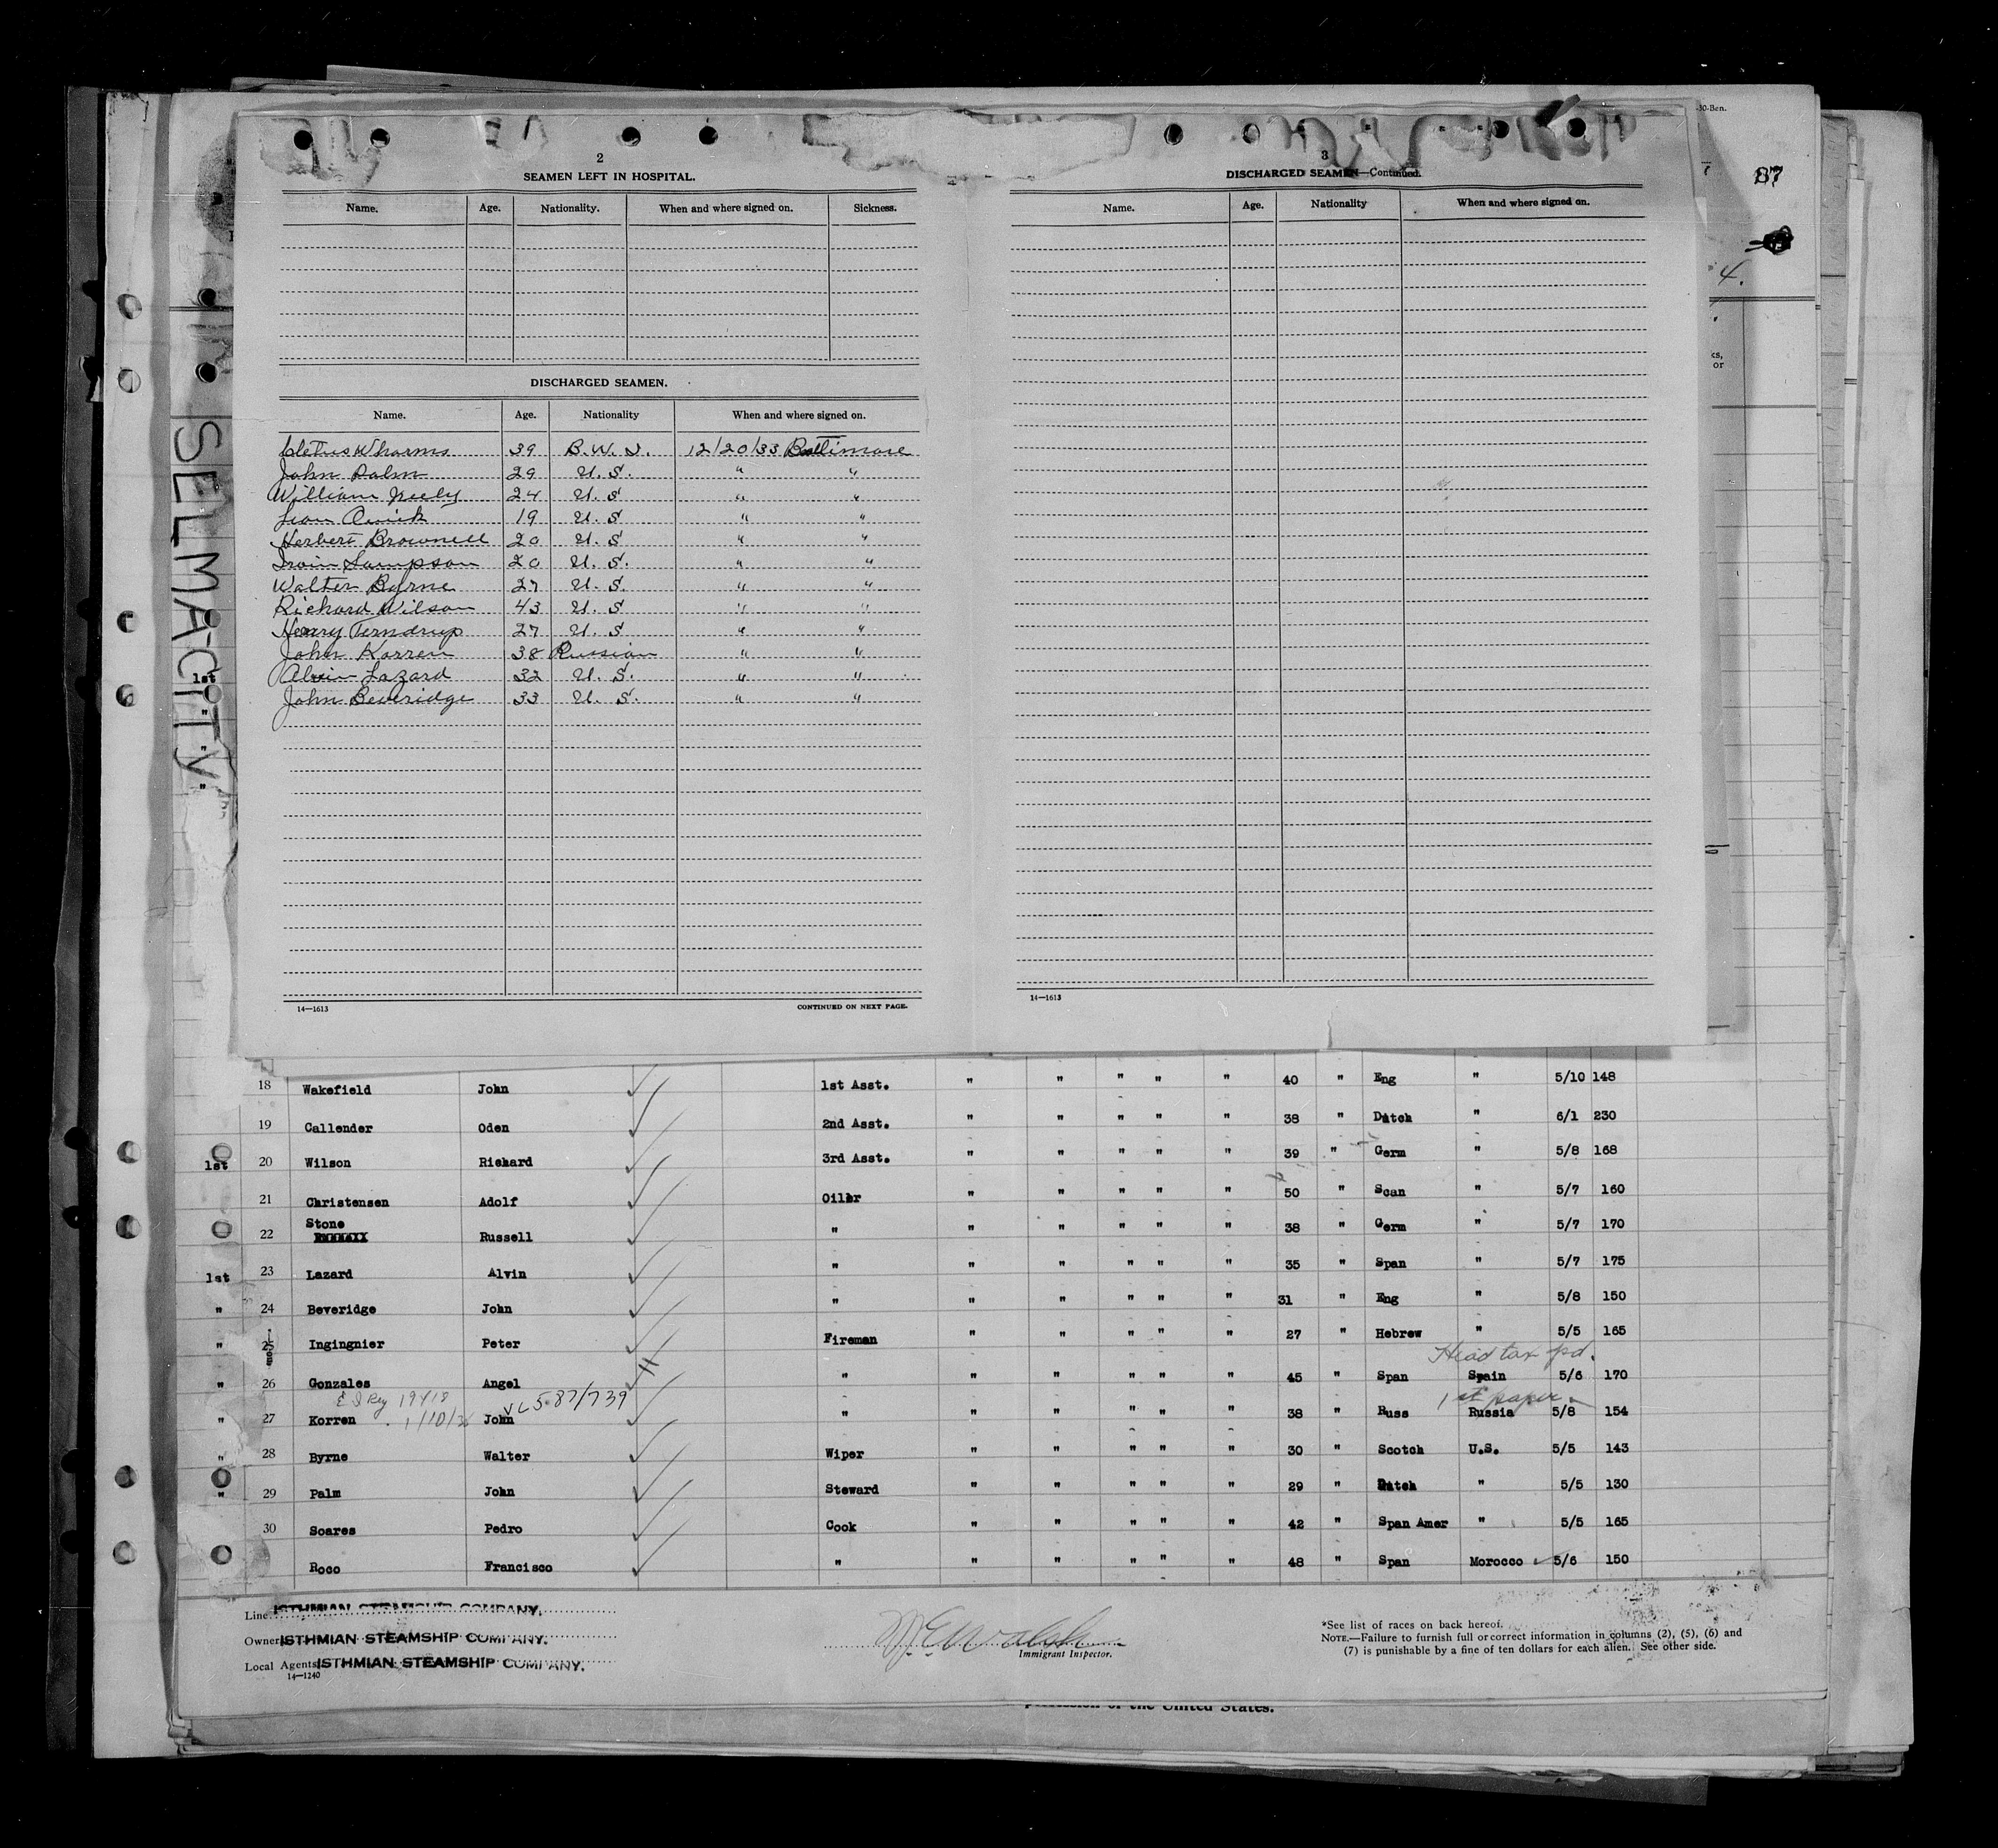 30-Ben.
87
4.
ks,
or
SELMA CITY
2
SEAMEN LEFT IN HOSPITAL.
Name. Age. Nationality. When and where signed on. Sickness.
DISCHARGED SEAMEN.
Name. Age. Nationality When and where signed on.
Cletus Wharms 39 B.W.I. 12/20/33 Baltimore
John Palm 29 U.S. " "
William Neely 24 U.S " "
Leon Quick 19 U.S " "
Herbert Brownell 20 U.S " "
Irvin Sampson 20 U.S. " "
Walter Byrne 27 U.S. " "
Richard Wilson 43 U.S " "
Henry Terndrup 27 U.S " "
John Korren 38 Russian " "
Alvin Lazard 32 U.S. " "
John Beveridge 33 U.S. " "
14—1613 CONTINUED ON NEXT PAGE.
3
DISCHARGED SEAMEN—Continued.
Name. Age. Nationality When and where signed on.
14—1613
1st
"
"
"
18 Wakefield John 1st Asst. " " " " " 40 " Eng " 5/10 148
19 Callender Oden 2nd Asst. " " " " " 38 " Dutch " 6/1 230
1st 20 Wilson Richard 3rd Asst. " " " " " 39 " Germ " 5/8 168
21 Christensen Adolf Oiler " " " " " 50 " Scan " 5/7 160
22 Stone Russell " " " " " " 38 " Germ " 5/7 170
1st 23 Lazard Alvin " " " " " " 35 " Span " 5/7 175
" 24 Beveridge John " " " " " " 31 " Eng " 5/8 150
" 25 Ingingnier Peter Fireman " " " " " 27 " Hebrew " 5/5 165
Head tax pd.
" 26 Gonzales Angel " " " " " " 45 " Span Spain 5/6 170
E S Rey 19418 VL 587/739 1st paper
" 27 Korren 1/10/3 John " " " " " " 38 " Russ Russia 5/8 154
" 28 Byrne Walter Wiper " " " " " 30 " Scotch U.S. 5/5 143
" 29 Palm John Steward " " " " " 29 " Dutch " 5/5 130
30 Soares Pedro Cook " " " " " 42 " Span Amer " 5/5 165
Roco Francisco " " " " " " 48 " Span Morocco 5/6 150
Line ISTHMIAN STEAMSHIP COMPANY.
Owner ISTHMIAN STEAMSHIP COMPANY.
Local Agents ISTHMIAN STEAMSHIP COMPANY.
14—1240
M E Walsh
Immigrant Inspector.
*See list of races on back hereof.
NOTE.—Failure to furnish full or correct information in columns (2), (5), (6) and
(7) is punishable by a fine of ten dollars for each alien. See other side.
permission of the United States.